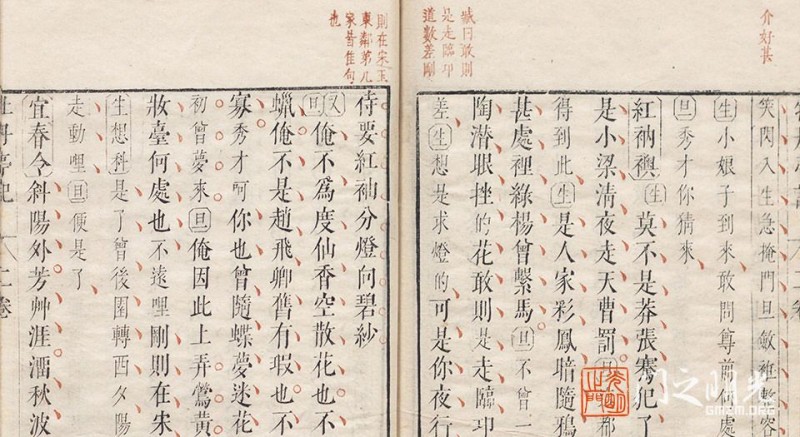 介好甚
笑閃入生急掩門旦斂衽整容
生小娘子到來敢問尊前何處
旦秀才你猜來
紅衲襖生莫不是莽張騫犯了
是小梁清夜走天曹罰都
得到此生是人家彩鳳暗隨鴉
甚處裡綠楊曾繫馬旦不曾一
陶潛眼挫的花敢則是走臨卭
差生想是求燈的可是你夜行
日敢則
是走臨卭
道數差剛
則在宋玉
東鄰第几
家皆佳句
也
侍要紅袖分燈向碧紗
又旦俺不爲度仙香空散花也不
蠟俺不是趙飛卿舊有瑕也不
寡秀才呵你也曾隨蝶夢迷花
初曾夢來旦俺因此上弄鶯黄
妝臺何處也不遠哩剛則在宋
生想科是了曾後園轉西夕陽
走動哩旦便是了
宜春令斜陽外芳艸涯
秋波
牡丹亭記
二卷
光明之門
GMZM.ORG